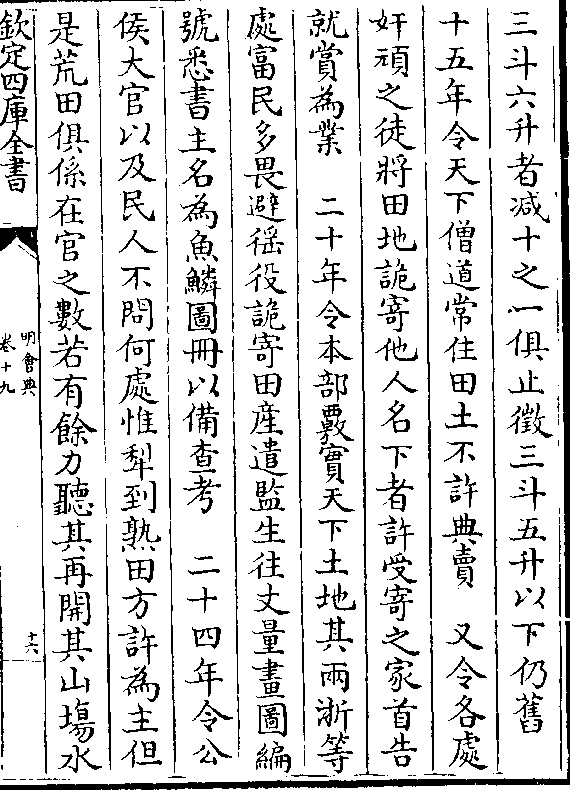 三斗六升者减十之一俱止徵三斗五升以下仍舊
十五年令天下僧道常住田土不許典賣　又令各處
奸頑之徒將田地詭寄他人名下者許受寄之家首告
就賞為業　二十年令本部覈實天下土地其兩浙等
處富民多畏避徭役詭寄田産遣監生往丈量畫圖編
號悉書主名為魚鱗圖冊以備查考　二十四年令公
侯大官以及民人不問何處惟犁到熟田方許為主但
是荒田俱係在官之數若有餘力聽其再開其山場水
欽定四庫全書
明會典
卷十九
十六